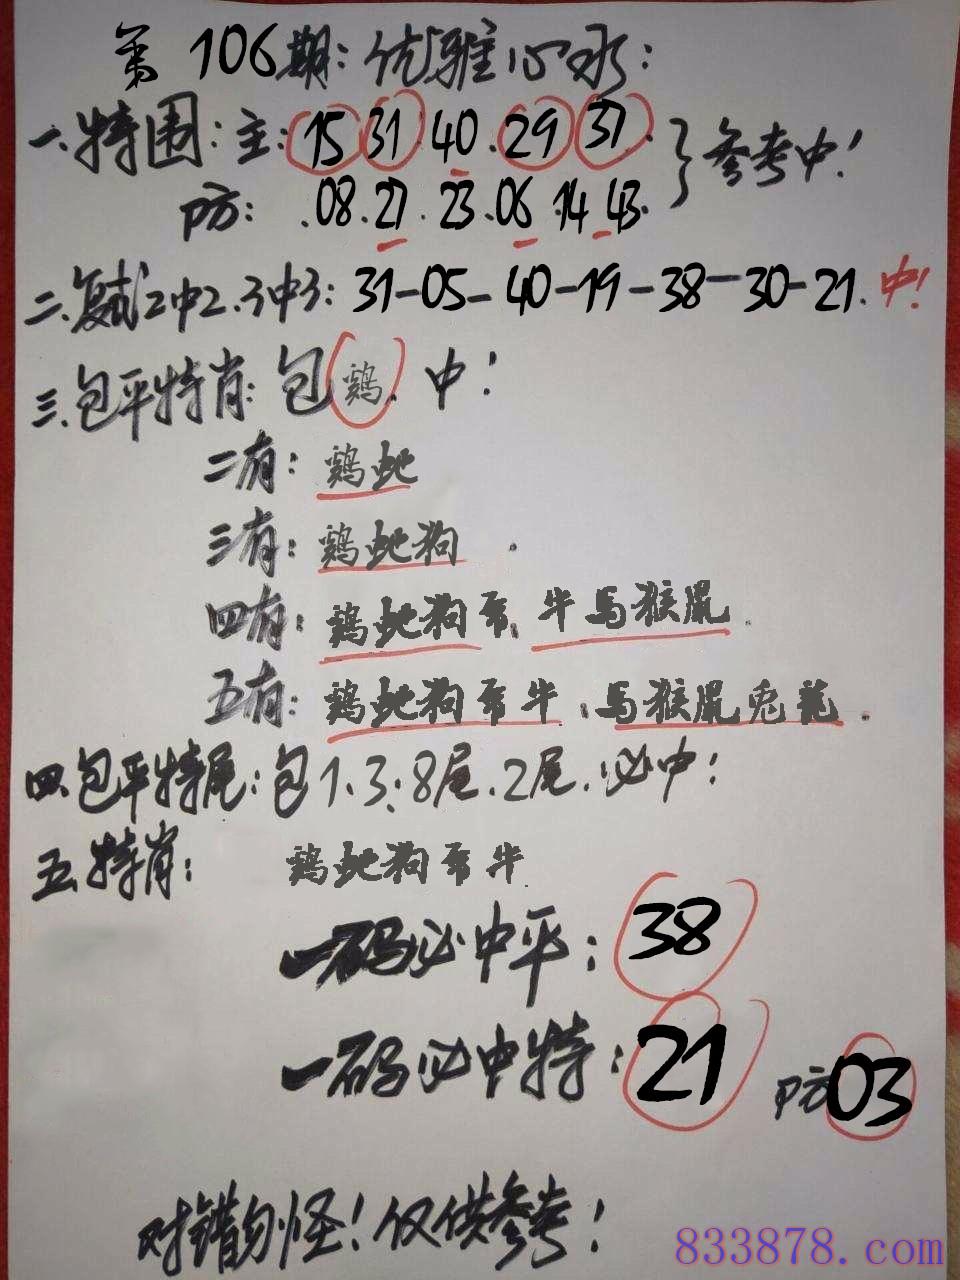 第106期：优雅心水：
一.特围：主：15 31 40 29 37. }参考中！
防：.08.21.23.06.14.43.
二.复试2中2.3中3：31-05-40-19-38-30-21.中！
三.包平特肖：包鷄.中！
二有：鷄蛇
三有：鷄蛇狗.
四有：鷄蛇狗 牛馬猴鼠.
五有：鷄蛇狗 牛.馬猴鼠兔龍.
四.包平特尾：包1.3.8尾.2尾.必中！
五.特肖：鷄蛇狗 牛.
一码必中平：38
一码必中特：21 防03
对错勿怪！仅供参考！
833878.com